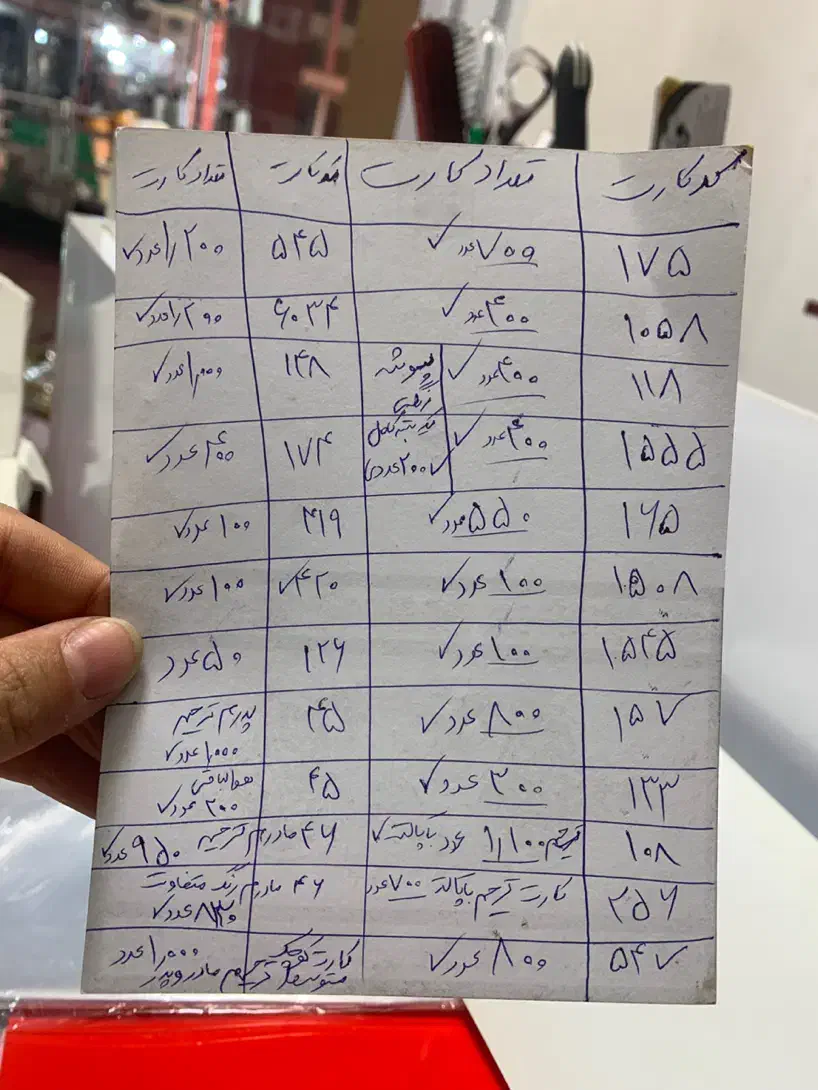 کد کارت تعداد کارت کد کارت تعداد کارت
۱۷۵ ۷۰۰ عدد ✓ ۵۴۵ ۱٫۲۰۰ عدد ✓
۱۰۵۸ ۴۰۰ عدد ✓ ۶۰۳۴ ۱٫۲۰۰ عدد ✓
۱۱۸ ۴۰۰ عدد ✓ ۱۴۸ ۱٫۰۰۰ عدد ✓
۱۵۵۵ ۴۰۰ عدد ✓ ۲۰۰ عدد ✓ ۱۷۴ ۴۰۰ عدد ✓
۱۶۵ ۵۵۰ عدد ✓ ۴۱۹ ۱۰۰ عدد ✓
۱۵۰۸ ۱۰۰ عدد ✓ ۴۲۰ ✓ ۱۰۰ عدد ✓
۱۵۴۵ ۱۰۰ عدد ✓ ۱۲۶ ۵۰ عدد
۱۵۷ ۸۰۰ عدد ✓ ۴۵ پدرم ترحیم
۱٫۰۰۰ عدد ✓
۱۳۳ ۳۰۰ عدد ✓ ۴۵ هوالباقی
۲۰۰ عدد ✓
۱۰۸ ترحیم ۱٫۱۰۰ عدد با پاکت ✓ ۴۶ مادرم ترحیم ۹۵۰ عدد ✓
۲۵۶ کارت ترحیم با پاکت ۷۰۰ عدد ۴۶ مادرم رنگ متفاوت
عدد ✓
۵۴۷ ۸۰۰ عدد ✓ کارت کوچک ۱٫۰۰۰ عدد
متوسط ترحیم مادر و پدر